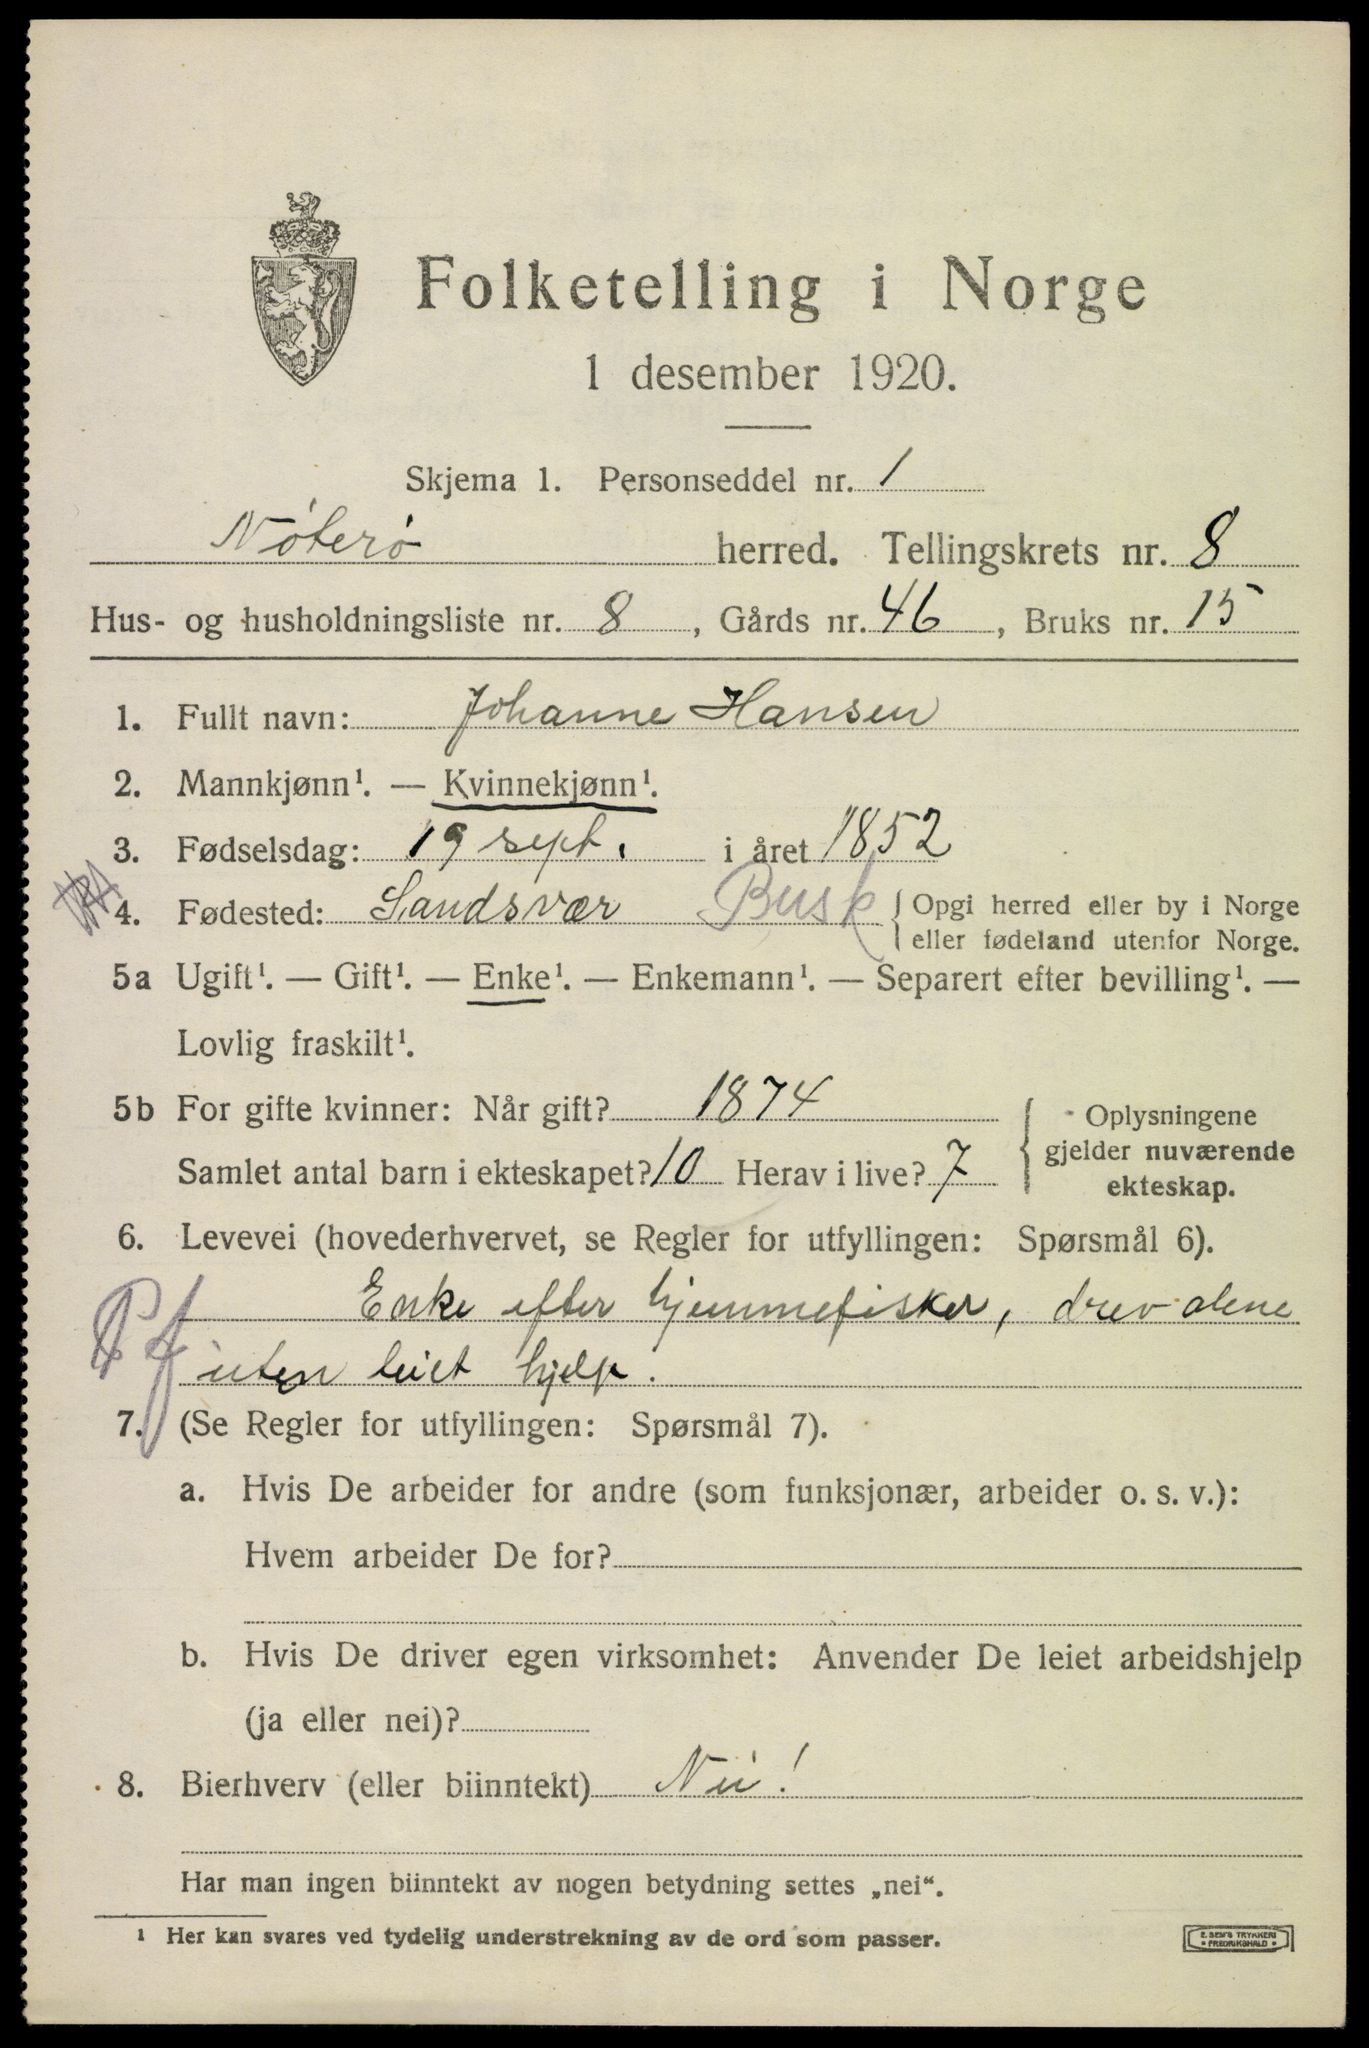 Folketelling i Norge
1 desember 1920.
Skjema 1. Personseddel nr. 1
Nöterö herred. Tellingskrets nr. 8
Hus- og husholdningsliste nr. 8, Gårds nr. 46, Bruks nr. 15
1. Fullt navn: Johanne Hansen
2. Mannkjønn¹. — Kvinnekjønn¹.
3. Fødselsdag: 19 sept. i året 1852
4. Fødested: Sandsvær Busk { Opgi herred eller by i Norge
eller fødeland utenfor Norge.
5a Ugift¹. — Gift¹. — Enke¹. — Enkemann¹. — Separert efter bevilling¹. —
Lovlig fraskilt¹.
5b For gifte kvinner: Når gift? 1874
Samlet antal barn i ekteskapet? 10 Herav i live? 7
{ Oplysningene
gjelder nuværende
ekteskap.
6. Levevei (hovederhvervet, se Regler for utfyllingen: Spørsmål 6).
Enke efter hjemmefisker, drev alene
uten leiet hjelp.
7. (Se Regler for utfyllingen: Spørsmål 7).
a. Hvis De arbeider for andre (som funksjonær, arbeider o. s. v.):
Hvem arbeider De for?
b. Hvis De driver egen virksomhet: Anvender De leiet arbeidshjelp
(ja eller nei)?
8. Bierhverv (eller biinntekt) Nei!
Har man ingen biinntekt av nogen betydning settes „nei“.
¹ Her kan svares ved tydelig understrekning av de ord som passer.
E. SEM'S TRYKKERI
• FREDRIKSHALD •